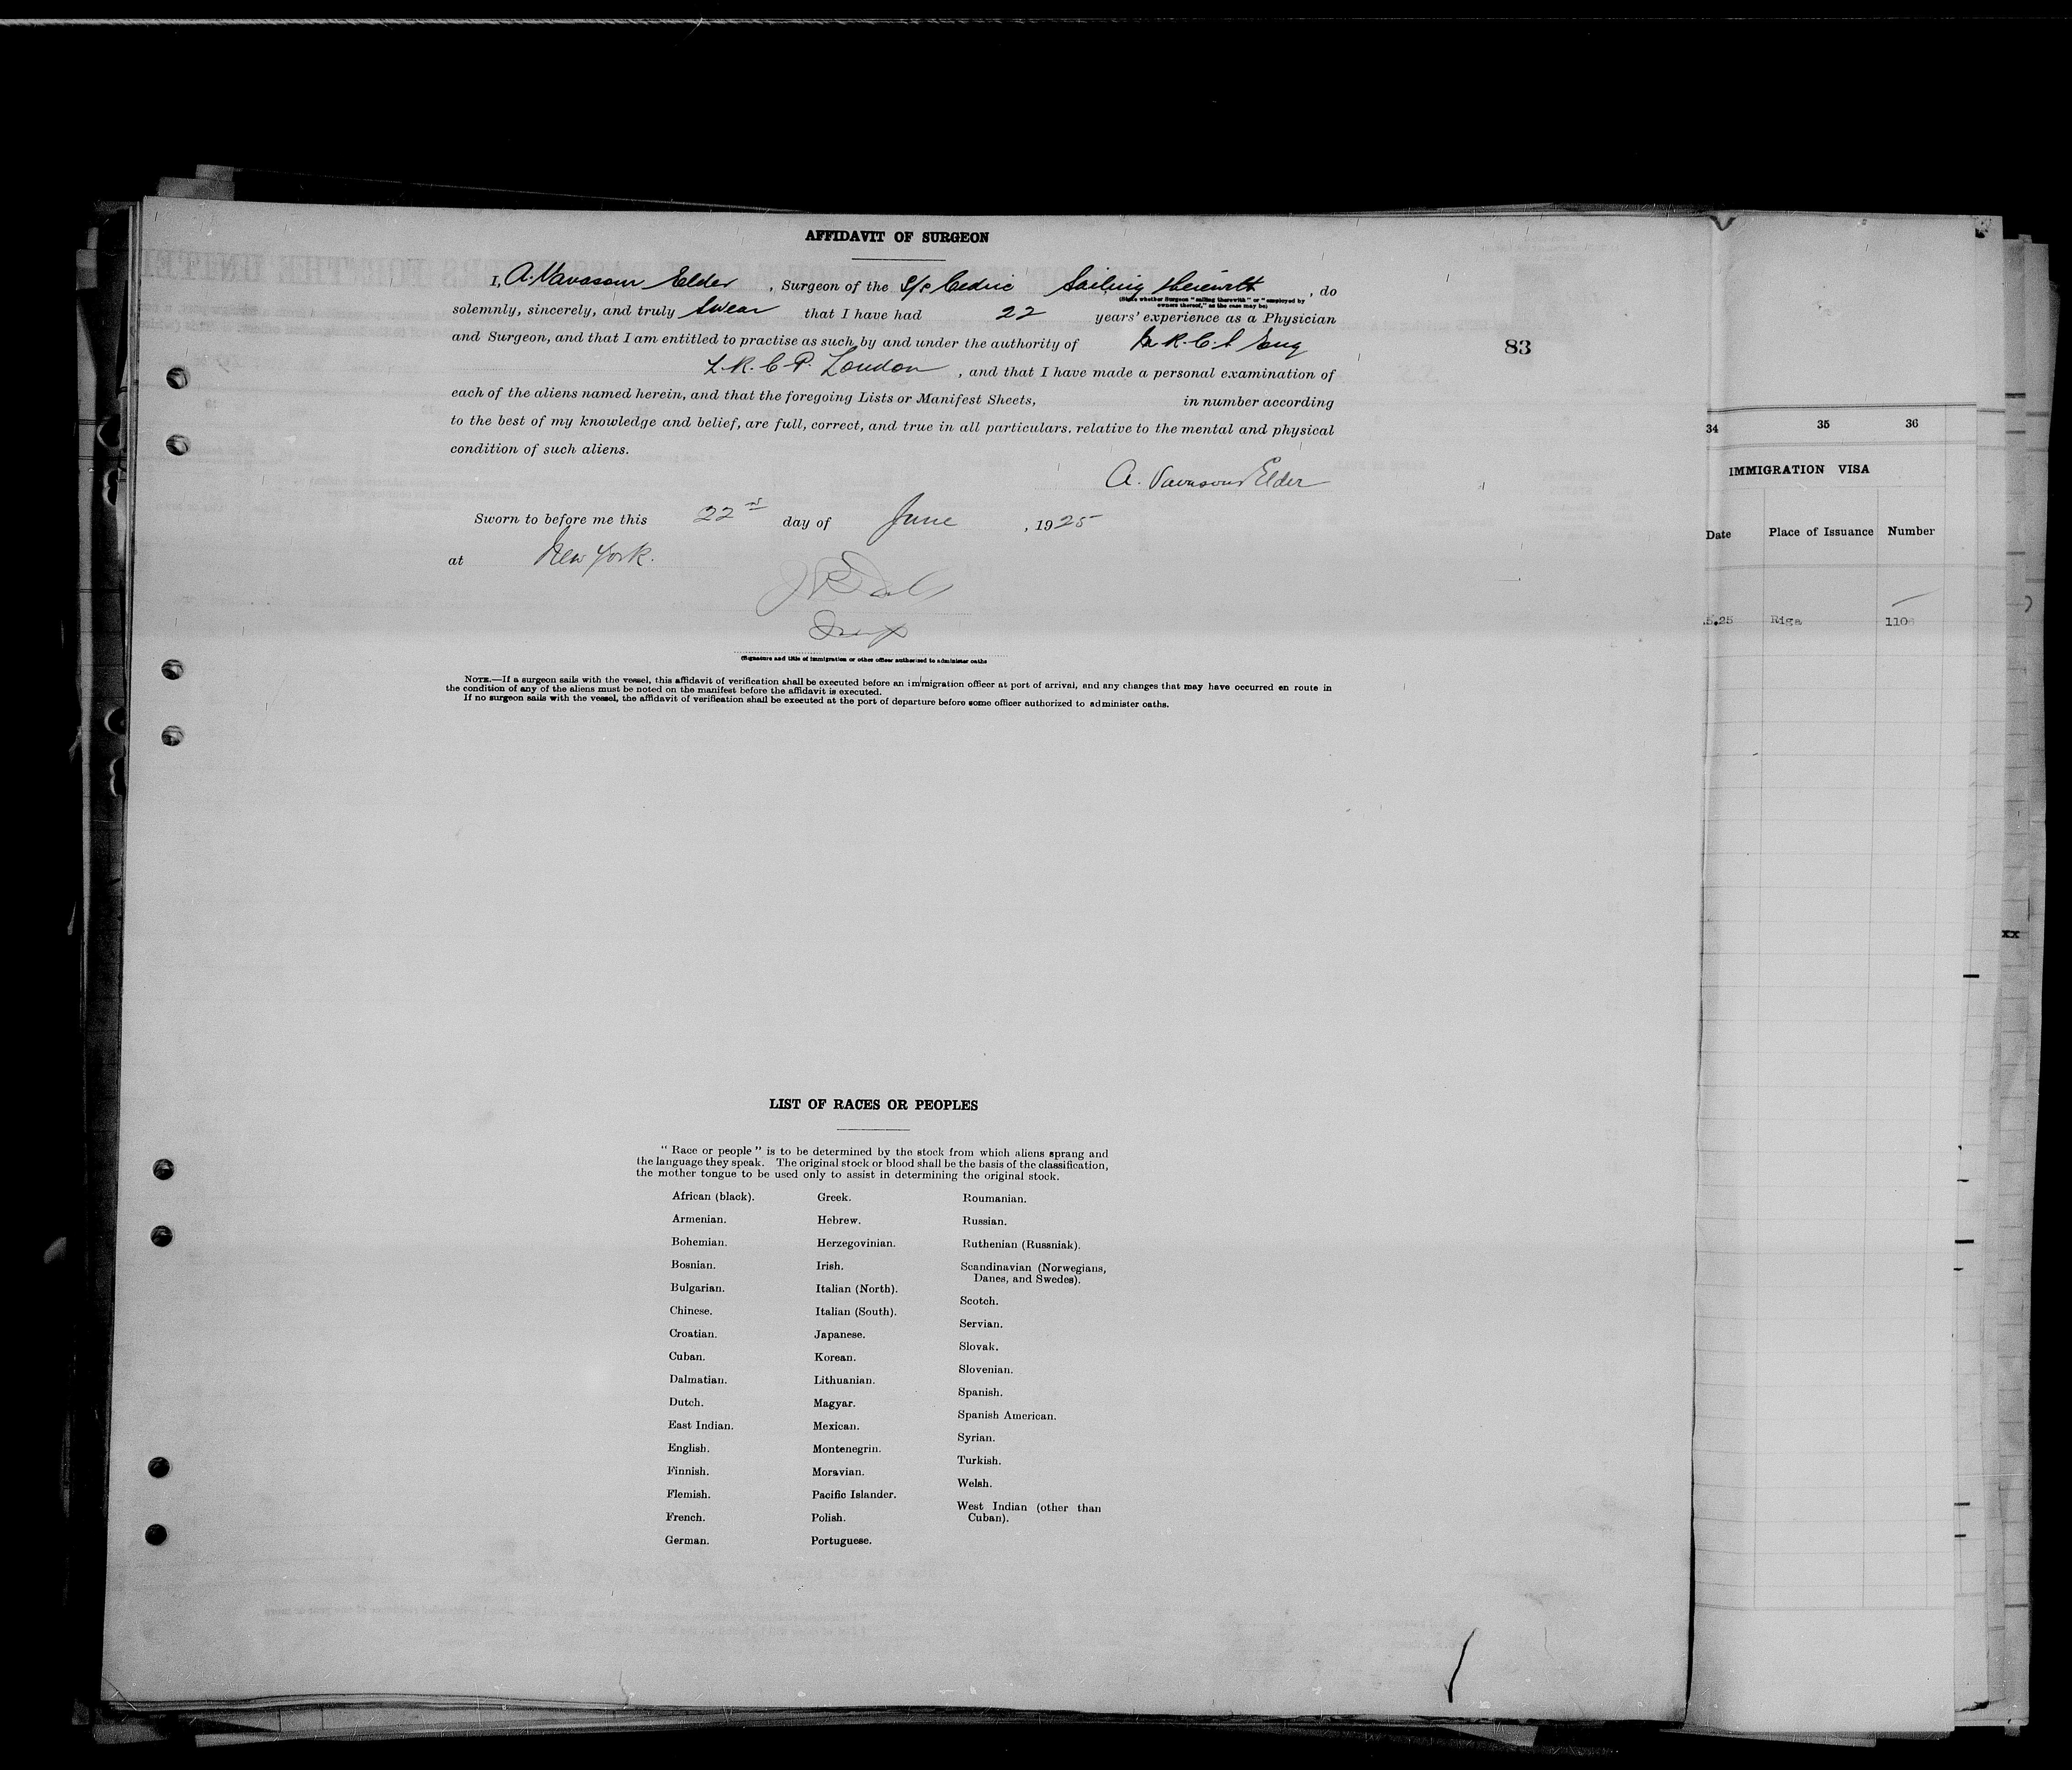 AFFIDAVIT OF SURGEON
I, A. Vavasour Elder, Surgeon of the S/S Cedric Sailing Therewith, do
(State whether Surgeon "sailing therewith" or "employed by
owners thereof," as the case may be)
solemnly, sincerely, and truly swear that I have had 22 years' experience as a Physician
and Surgeon, and that I am entitled to practise as such by and under the authority of M.R.C.S Eng
L.R.C.P. London, and that I have made a personal examination of
83
each of the aliens named herein, and that the foregoing Lists or Manifest Sheets, in number according
to the best of my knowledge and belief, are full, correct, and true in all particulars. relative to the mental and physical
condition of such aliens.
A. Vavasour Elder
Sworn to before me this 22nd day of June, 1925
at New York.
(Signature and title of immigration or other officer authorized to administer oaths
NOTE.—If a surgeon sails with the vessel, this affidavit of verification shall be executed before an immigration officer at port of arrival, and any changes that may have occurred en route in
the condition of any of the aliens must be noted on the manifest before the affidavit is executed.
If no surgeon sails with the vessel, the affidavit of verification shall be executed at the port of departure before some officer authorized to administer oaths.
LIST OF RACES OR PEOPLES
"Race or people" is to be determined by the stock from which aliens sprang and
the language they speak. The original stock or blood shall be the basis of the classification,
the mother tongue to be used only to assist in determining the original stock.
African (black).
Armenian.
Bohemian.
Bosnian.
Bulgarian.
Chinese.
Croatian.
Cuban.
Dalmatian.
Dutch.
East Indian.
English.
Finnish.
Flemish.
French.
German.
Greek.
Hebrew.
Herzegovinian.
Irish.
Italian (North).
Italian (South).
Japanese.
Korean.
Lithuanian.
Magyar.
Mexican.
Montenegrin.
Moravian.
Pacific Islander.
Polish.
Portuguese.
Roumanian.
Russian.
Ruthenian (Russniak).
Scandinavian (Norwegians,
Danes, and Swedes).
Scotch.
Servian.
Slovak.
Slovenian.
Spanish.
Spanish American.
Syrian.
Turkish.
Welsh.
West Indian (other than
Cuban).
34 35 36
IMMIGRATION VISA
Date Place of Issuance Number
5.25 Riga 1106
xx